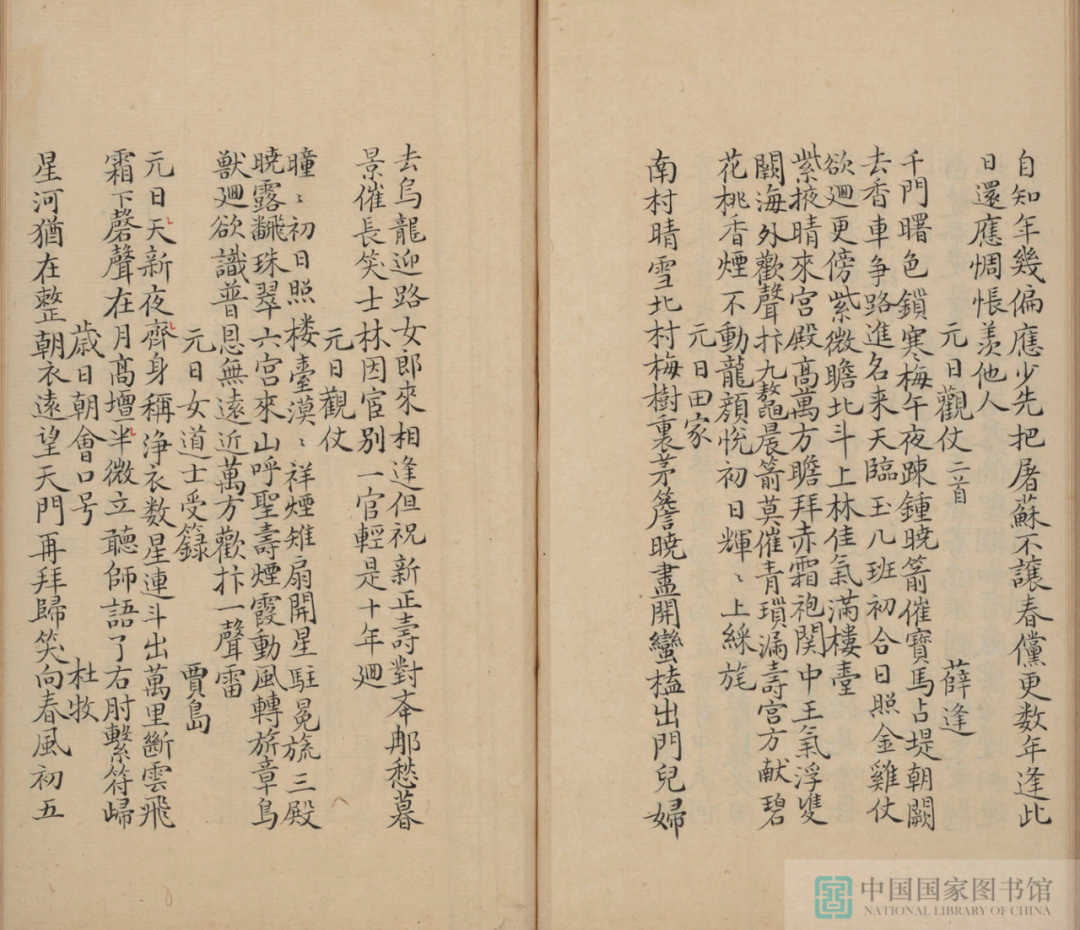 自知年幾偏應少先把屠蘇不讓春儻更数年逢此
日還應惆悵羨他人
元日觀仗二首　薛逢
千門曙色鎖寒梅午夜踈鍾曉箭催寶馬占堤朝闕
去香車爭路進名来天臨玉几班初合日照金雞仗
欲廻更傍紫微瞻北斗上林佳氣滿樓臺
紫掖晴來宮殿高萬方瞻拜赤霜袍関中王氣浮雙
闕海外歡聲抃九鼇晨箭莫催青瑣漏壽宮方献碧
花桃香煙不動龍顔悅初日輝〻上綵旄
元日田家
南村晴雪北村梅樹裏茅簷曉盡開蠻榼出門兒婦
去烏龍迎路女郎來相逢但祝新正壽對夲郍愁暮
景催長笑士林因宦别一官輕是十年廻
元日觀仗
曈〻初日照楼臺漠〻祥煙雉扇開星駐冕旒三殿
曉露飜珠翠六宮來山呼聖壽煙霞動風轉旂章鳥
獸廻欲識普恩無遠近萬方歡抃一聲雷
元日女道士受籙　賈島
元日天新夜齊身稱浄衣数星連斗出萬里斷雲飛
霜下磬聲在月髙壇半微立聽師語了右肘繫符歸
歳日朝會口号　杜牧
星河猶在整朝衣遠望天門再拜歸笑向春風初五
中国国家图书馆
NATIONAL LIBRARY OF CHINA